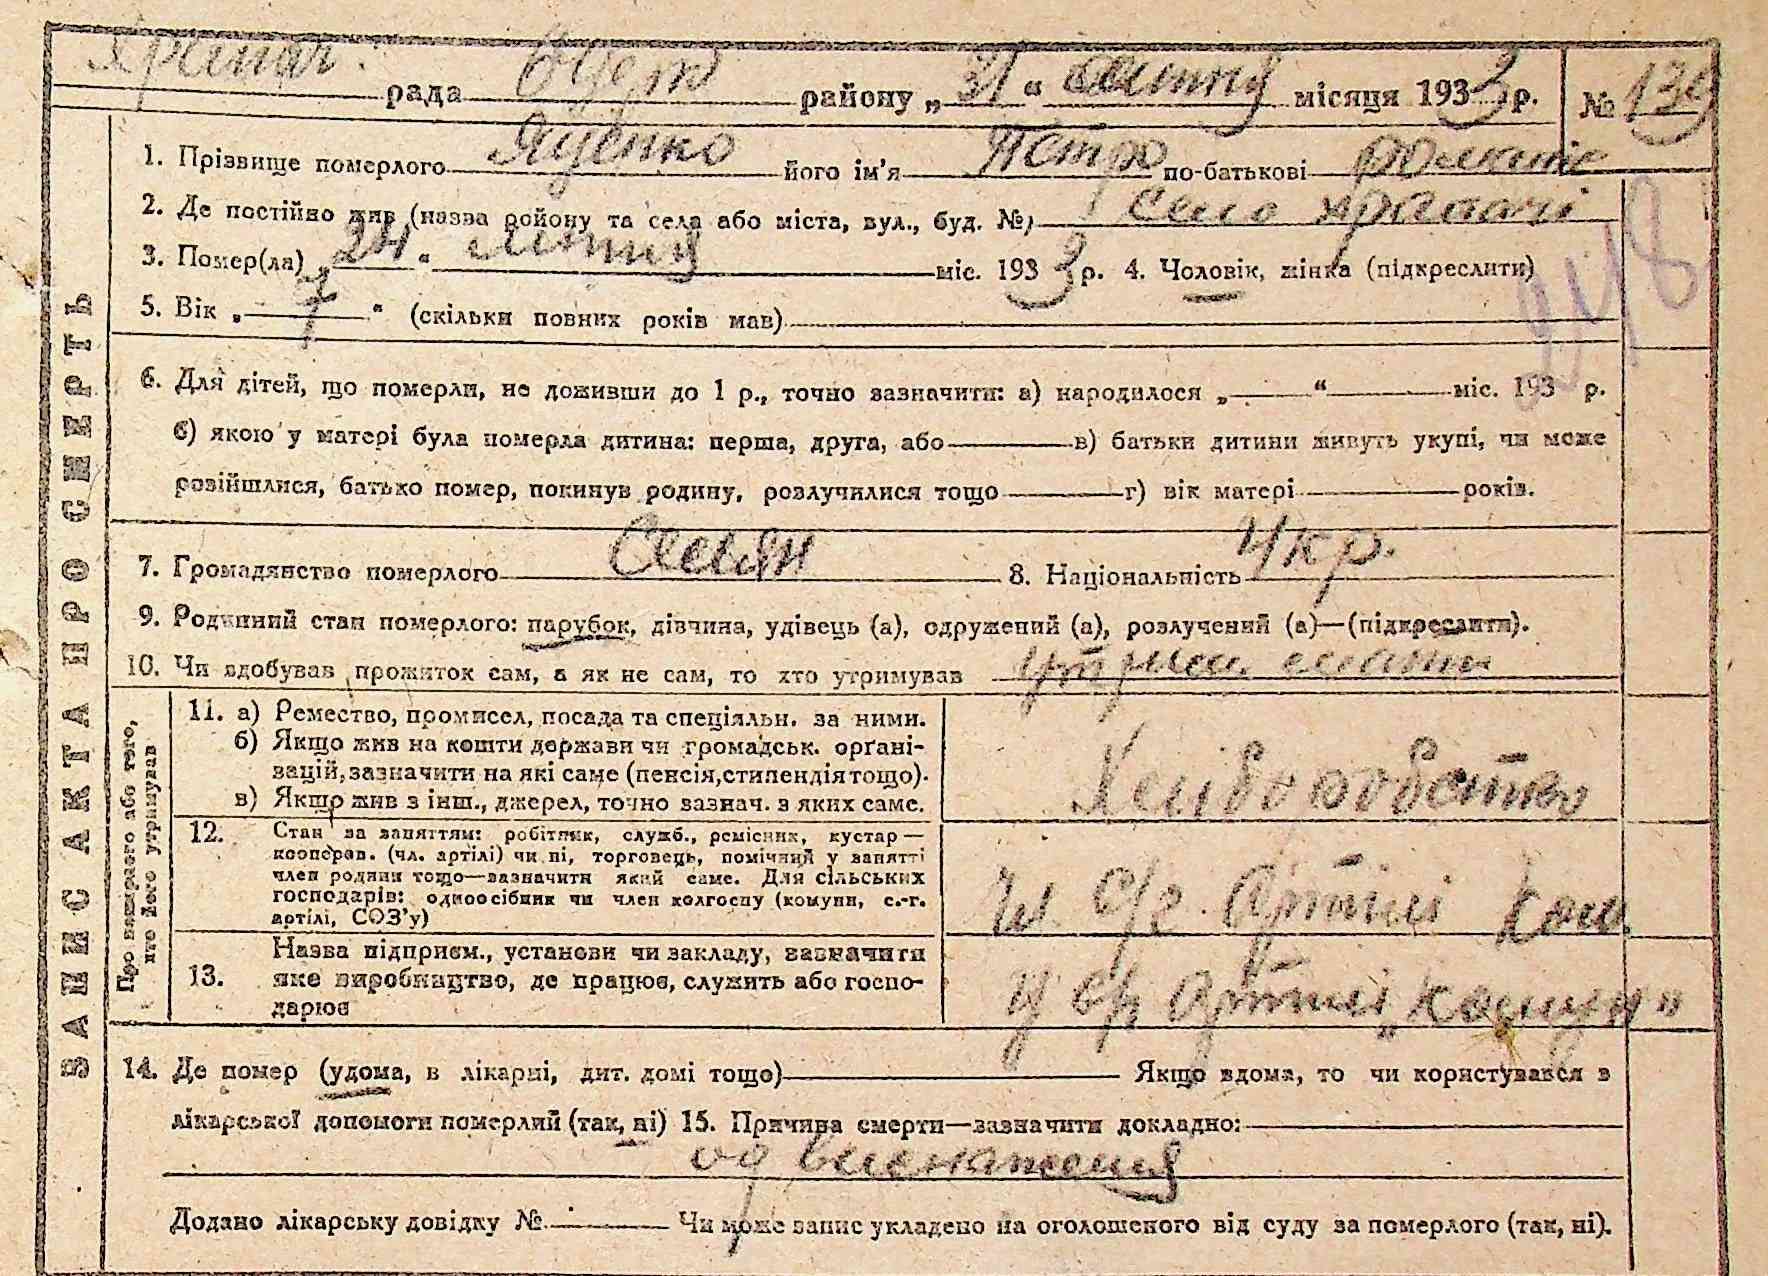 Храпач. рада районy „31“ липня місяця 1933 р. № 139
1. Прізвище померлого Яценко його ім'я Петро по-батькові
2. Де постійно жив (назва району та села або міста, вул., буд. №) село Храпачі
3. Помер(ла) „24“ липня міс. 1933 р. 4. Чоловік, жінка (підкреслити)
5. Вік „7“ (скільки повних років мав)
6. Для дітей, що померли, не доживши до 1 р., точно зазначити: а) народилося „ “ міс. 193 р.
б) якою у матері була померла дитина: перша, друга, або в) батьки дитини живуть укупі, чи може
розійшлися, батько помер, покинув родину, розлучилися тощо г) вік матері років.
7. Громадянство померлого 8. Національність Укр.
9. Родинний стан померлого: парубок, дівчина, удівець (а), одружений (а), розлучений (а)—(підкреслити).
10. Чи здобував прожиток сам, а як не сам, то хто утримував утрим. мати
ЗАПИС АКТА ПРО СМЕРТЬ
Про померлого або того,
хто його утримував
11. а) Ремество, промисел, посада та спеціяльн. за ними.
б) Якщо жив на кошти держави чи громадськ. орґані-
зацій, зазначити на які саме (пенсія, стипендія тощо).
в) Якщо жив з інш., джерел, точно зазнач. з яких саме.
Хліборобство
12. Стан за заняттям: робітник, служб., ремісник, кустар —
кооперов. (чл. артілі) чи ні, торговець, помічний у занятті
член родини тощо—зазначити який саме. Для сільських
господарів: одноосібник чи член колгоспу (комуни, с.-г.
артілі, СОЗ'у)
чл. с/г. Артілі Ком.
13. Назва підприєм., установи чи закладу, зазначити
яке виробництво, де працює, служить або госпо-
дарює
У с/г артілі „Комун“
14. Де помер (удома, в лікарні, дит. домі тощо) Якщо вдома, то чи користувався з
лікарської допомоги померлий (так, ні) 15. Причина смерти—зазначити докладно:
од виснаження
Додано лікарську довідку № Чи може запис укладено на оголошеного від суду за померлого (так, ні).